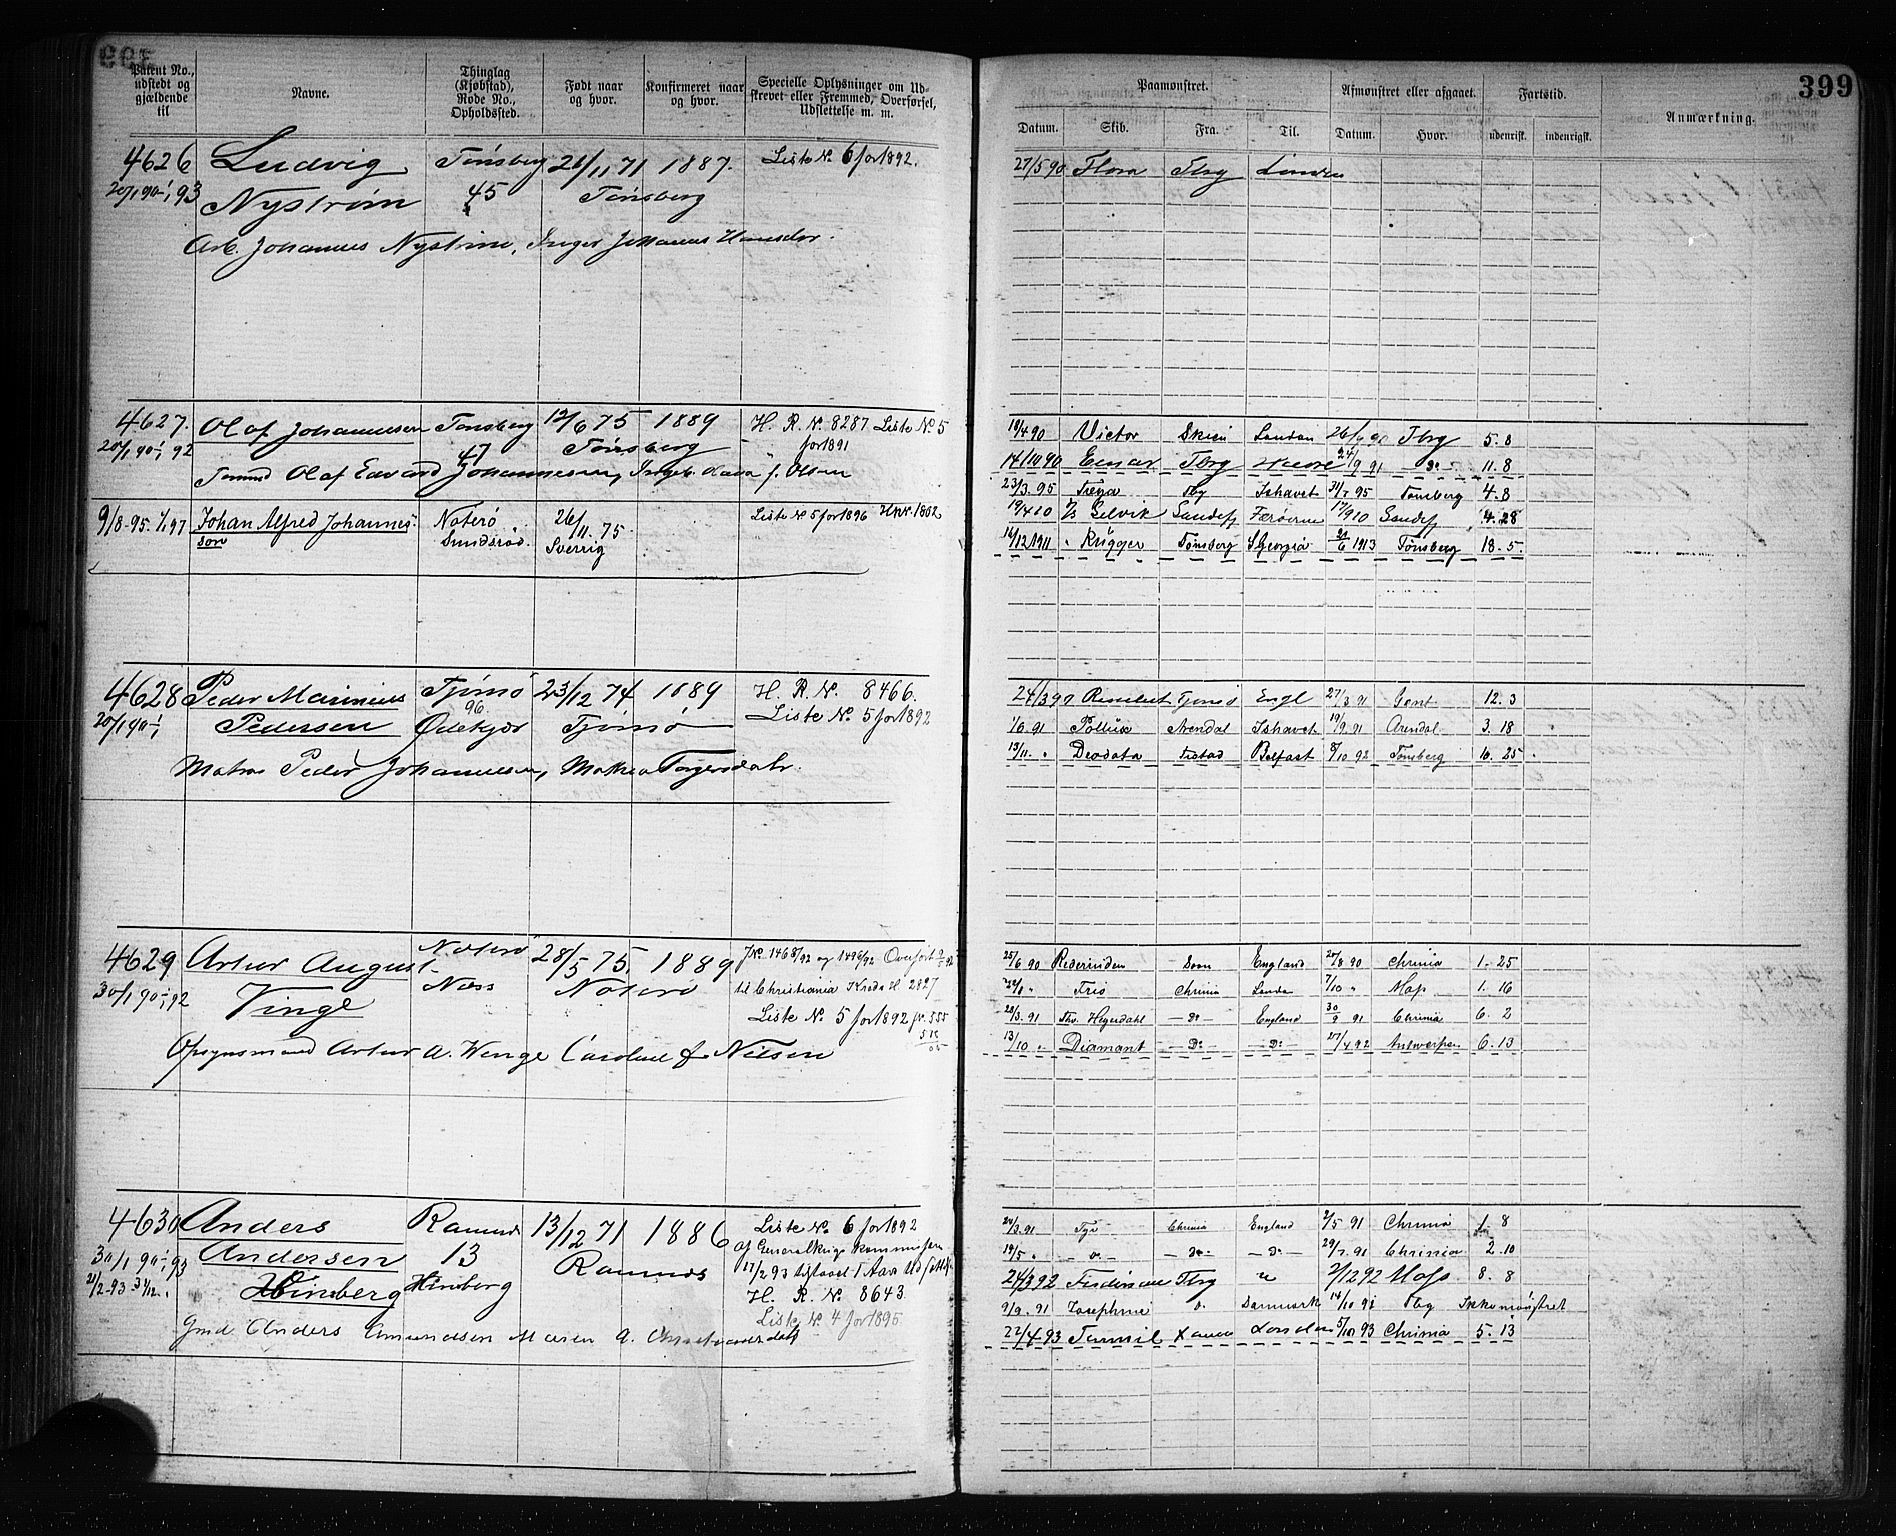 399
Patent No., udstedt og gjældende til
Navne.
Thinglag (Kjøbstad), Rode No., Opholdssted.
Født naar og hvor.
Konfirmeret naar og hvor.
Specielle Oplysninger om Udskrevet eller Fremmed, Overførsel, Udslettelse m. m.
Paamønstret.
Afmønstret eller afgaaet.
Fartstid.
Anmærkning.
Datum. Skib. Fra. Til. Datum. Hvor. udenrigst. indenrigst.
4626 Ludvig Tønsberg 21/11 71 1887. Liste No 6 for 1892.
20/1 90 - 1/1 93 Nystrøm 45 Tønsberg
Arb. Johannes Nystrøm, Inger Johannes Hansdtr.
27/5 90 Flora Tbrg London
4627. Olaf Johannessen Tønsberg 12/6 75 1889 H. R. No. 8287 Liste No 5
20/1 90 - 1/1 92 47 Tønsberg for 1891
Olaf Edvard Johannesen, Olsen
9/8-95. 1/1 97 Johan Alfred Johannes- Nøterø 26/11. 75 Liste No 5 for 1896 HpNr. 1802
son Sundsrød. Sverrig
19/4 90 Victor Skien London Tbrg 5. 8
14/10 90 Einar Tbrg Havre 24/9 91 Do 11. 8
23/3. 95 Freya Tbg Ishavet 31/7 95 Tønsberg 4. 8
19/4 10 Selvik Sandefj Færøerne 17/9 10 Sandefj 4. 28
16/12 1911 Krügger Tønsberg S Georgia 21/6 1913 Tønsberg 18. 5.
4628 Peder Marinius Tjømø 23/12 74 1889 H. R. No. 8466.
20/1 90 - 1/1 Pedersen 96. Tjømø Liste No. 5 for 1892
Matros Peder Johannessen, Mathea Torgersdatr.
24/3 90 Tjømø Engl 27/3 91 Gent 12. 3
1/6. 91 Pollux Arendal Ishavet 19/9. 91 Arendal. 3. 18
13/11. " Deodata Frstad Belfast 8/10 92 Tønsberg 10. 25
4629 Artur August Nøterø 28/5 75. 1889 JNo 1468/92 og 1496/92 Overført
30/1 90 - 1/1 92 Vinge Næss Nøterø til Christiania Kreds H 2827
Liste No. 5 for 1892
Opsynsmand Artur A. Wenge Caroline f. Nilsen
25/6 90 England 28/8 90 Chrinia 1. 25
Trio Chrinia 7/10 " 1. 16
28/3. 91 Thv. Heyerdahl Do England 30/9 91 Chrinia 6. 2
13/10 " Diamant Do Do 27/4 92 Antwerpen 6. 13
4630 Anders Ramnes 13/12 71 1886 Liste No 6 for 1892
30/1 90 - 1/1 93 Andersen 13 Ramnes af Generalkrigskommissæren
21/2-93 31/12. Himberg Himberg 17/2 93
H. R. No 8643.
Liste No 4 for 1895
Gmd. Anders Amundsen Maren A.
24/3. 91 Tyr Chrinia England 2/5 91 Chrinia 1. 8
19/5 " Do Do 29/7. 91 Chrinia 2. 10
24/3 92 Tbrg 2/12 92 Moss 8. 8
9/9. 91 Josephine Danmark 14/10 91 Tbg Ikkemønstret
22/4 93 London 5/10 93 Chrinia 5. 13